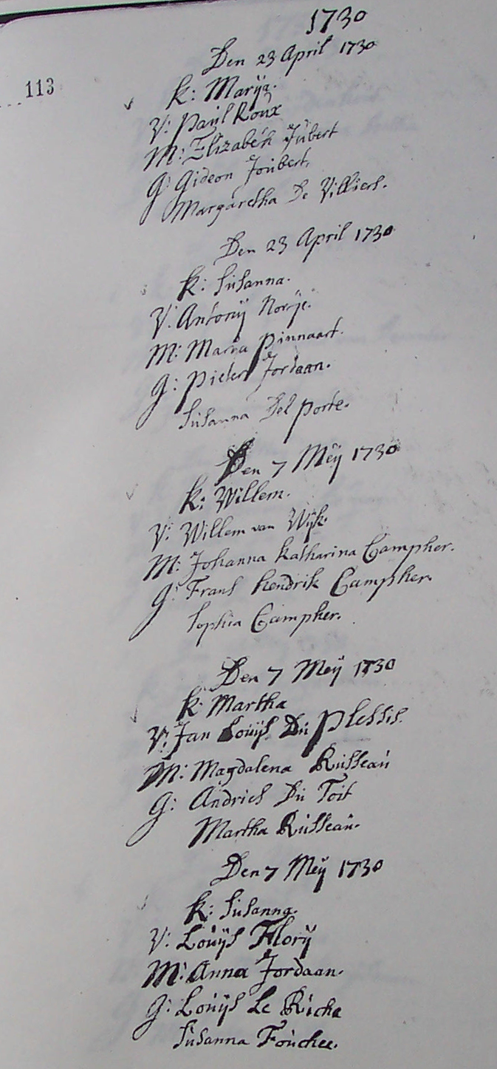 1730
113
Den 23 April 1730
K: Marija.
V: Paul Roux
M: Elizabeth Jubert
G: Gideon Joubert.
Margaretha De Villiers.
Den 23 April 1730
K: Susanna.
V: Antonij Norje.
M: Maria Pinnaart.
G: Pieter Jordaan.
Susanna Del porte.
Den 7 Meÿ 1730
K: Willem.
V: Willem van Wijk.
M: Johanna Katharina Campher.
G: Frans Hendrik Campher.
Sophia Campher.
Den 7 Meÿ 1730
K: Martha
V: Jan Louijs Du Plessis
M: Magdalena Russeau
G: Andries Du Toit
Martha Russeau.
Den 7 Meÿ 1730
K: Susanna.
V: Louijs Florij
M: Anna Jordaan.
G: Louijs Le Riche
Susanna Fouchee.